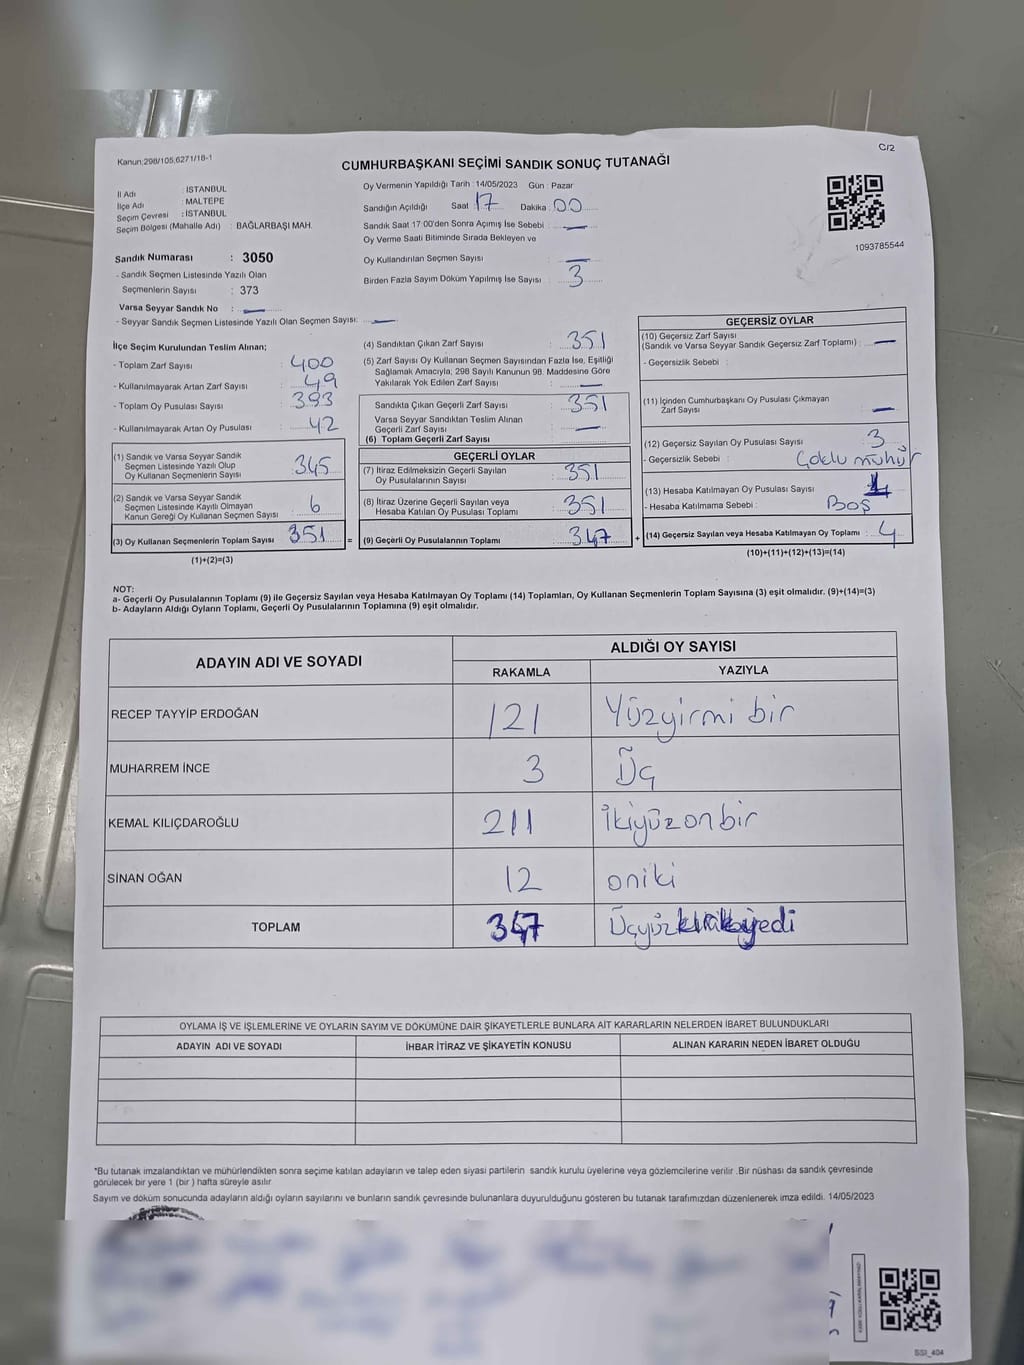 Kanun;298/105,6271/18-1
C/2
CUMHURBAŞKANI SEÇİMİ SANDIK SONUÇ TUTANAĞI
İl Adı : İSTANBUL
İlçe Adı : MALTEPE
Seçim Çevresi : İSTANBUL
Seçim Bölgesi (Mahalle Adı) : BAĞLARBAŞI MAH.
Oy Vermenin Yapıldığı Tarih : 14/05/2023 Gün : Pazar
Sandığın Açıldığı Saat : 17 Dakika : 00
Sandık Saat 17:00'den Sonra Açımış İse Sebebi : —
Oy Verme Saati Bitiminde Sırada Bekleyen ve
Oy Kullandırılan Seçmen Sayısı : —
Birden Fazla Sayım Döküm Yapılmış İse Sayısı : 3
1093785544
Sandık Numarası : 3050
- Sandık Seçmen Listesinde Yazılı Olan
Seçmenlerin Sayısı : 373
Varsa Seyyar Sandık No : —
- Seyyar Sandık Seçmen Listesinde Yazılı Olan Seçmen Sayısı: —
İlçe Seçim Kurulundan Teslim Alınan;
- Toplam Zarf Sayısı : 400
- Kullanılmayarak Artan Zarf Sayısı : 49
- Toplam Oy Pusulası Sayısı : 393
- Kullanılmayarak Artan Oy Pusulası : 42
(1) Sandık ve Varsa Seyyar Sandık
Seçmen Listesinde Yazılı Olup
Oy Kullanan Seçmenlerin Sayısı : 345
(2) Sandık ve Varsa Seyyar Sandık
Seçmen Listesinde Kayıtlı Olmayan
Kanun Gereği Oy Kullanan Seçmen Sayısı : 6
(3) Oy Kullanan Seçmenlerin Toplam Sayısı : 351
(1)+(2)=(3)
(4) Sandıktan Çıkan Zarf Sayısı : 351
(5) Zarf Sayısı Oy Kullanan Seçmen Sayısından Fazla İse, Eşitliği
Sağlamak Amacıyla; 298 Sayılı Kanunun 98. Maddesine Göre
Yakılarak Yok Edilen Zarf Sayısı : —
Sandıkta Çıkan Geçerli Zarf Sayısı : 351
Varsa Seyyar Sandıktan Teslim Alınan
Geçerli Zarf Sayısı : —
(6) Toplam Geçerli Zarf Sayısı
GEÇERLİ OYLAR
(7) İtiraz Edilmeksizin Geçerli Sayılan
Oy Pusulalarının Sayısı : 351
(8) İtiraz Üzerine Geçerli Sayılan veya
Hesaba Katılan Oy Pusulası Toplamı : 351
= (9) Geçerli Oy Pusulalarının Toplamı : 347
GEÇERSİZ OYLAR
(10) Geçersiz Zarf Sayısı
(Sandık ve Varsa Seyyar Sandık Geçersiz Zarf Toplamı) : —
- Geçersizlik Sebebi :
(11) İçinden Cumhurbaşkanı Oy Pusulası Çıkmayan
Zarf Sayısı : —
(12) Geçersiz Sayılan Oy Pusulası Sayısı : 3
- Geçersizlik Sebebi : Çoklu mühür
(13) Hesaba Katılmayan Oy Pusulası Sayısı : 1
- Hesaba Katılmama Sebebi : Boş
+ (14) Geçersiz Sayılan veya Hesaba Katılmayan Oy Toplamı : 4
(10)+(11)+(12)+(13)=(14)
NOT:
a- Geçerli Oy Pusulalarının Toplamı (9) ile Geçersiz Sayılan veya Hesaba Katılmayan Oy Toplamı (14) Toplamları, Oy Kullanan Seçmenlerin Toplam Sayısına (3) eşit olmalıdır. (9)+(14)=(3)
b- Adayların Aldığı Oyların Toplamı, Geçerli Oy Pusulalarının Toplamına (9) eşit olmalıdır.
ADAYIN ADI VE SOYADI
ALDIĞI OY SAYISI
RAKAMLA YAZIYLA
RECEP TAYYİP ERDOĞAN 121 Yüzyirmi bir
MUHARREM İNCE 3 Üç
KEMAL KILIÇDAROĞLU 211 İkiyüz on bir
SİNAN OĞAN 12 oniki
TOPLAM 347 Üçyüzkırkyedi
OYLAMA İŞ VE İŞLEMLERİNE VE OYLARIN SAYIM VE DÖKÜMÜNE DAİR ŞİKAYETLERLE BUNLARA AİT KARARLARIN NELERDEN İBARET BULUNDUKLARI
ADAYIN ADI VE SOYADI İHBAR İTİRAZ VE ŞİKAYETİN KONUSU ALINAN KARARIN NEDEN İBARET OLDUĞU
*Bu tutanak imzalandıktan ve mühürlendikten sonra seçime katılan adayların ve talep eden siyasi partilerin sandık kurulu üyelerine veya gözlemcilerine verilir .Bir nüshası da sandık çevresinde
görülecek bir yere 1 (bir ) hafta süreyle asılır.
Sayım ve döküm sonucunda adayların aldığı oyların sayılarını ve bunların sandık çevresinde bulunanlara duyurulduğunu gösteren bu tutanak tarafımızdan düzenlenerek imza edildi. 14/05/2023
SSI_404